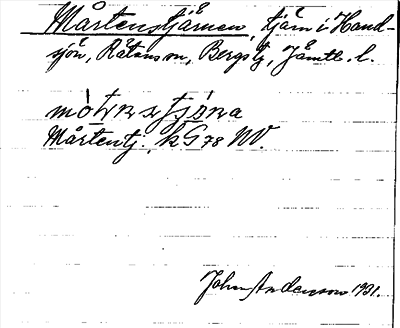 Mårtenstjärnen, tjärn i Hand-
sjön, Rätans sn, Bergs tg, Jämtl. l.
Mårtentj., kG 78 NV.
John Andersson 1931.